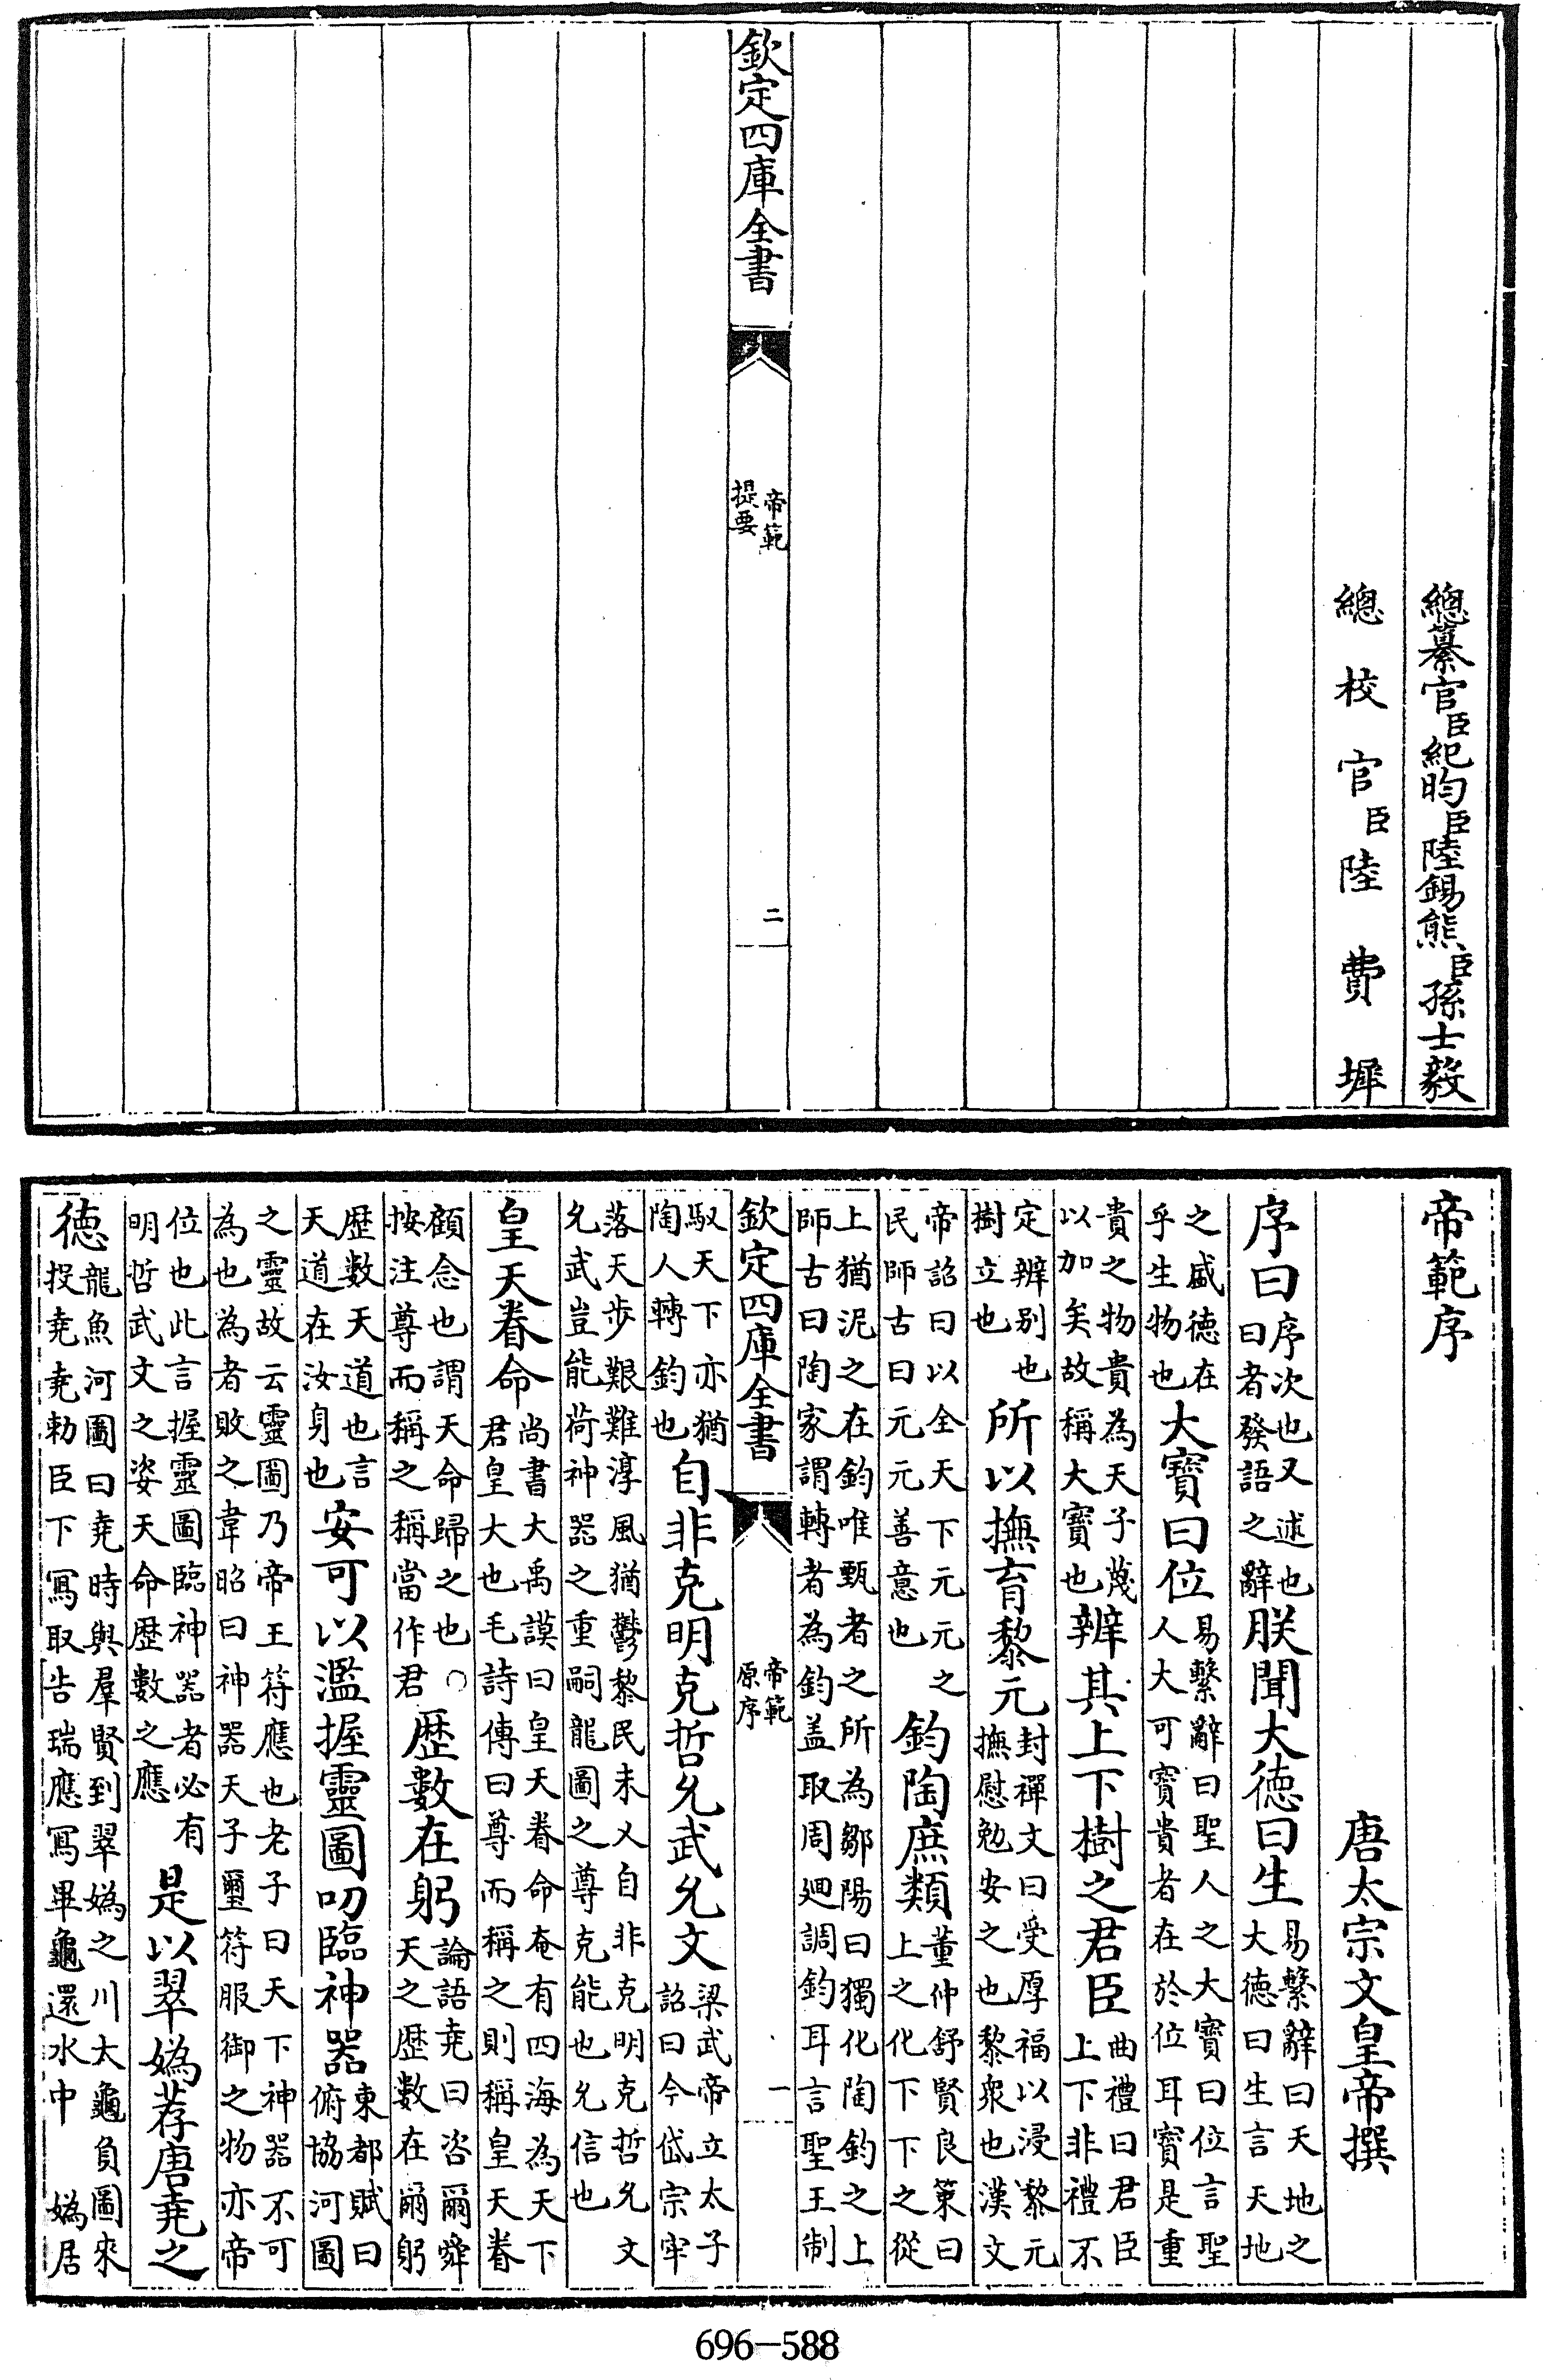 總纂官臣紀昀臣陸錫熊臣孫士毅
總校官臣陸費墀
欽定四庫全書
帝範
提要
二
帝範序
唐太宗文皇帝撰
序曰序次也又述也曰者發語之辭朕聞大徳曰生易繫辭曰天地之大徳曰生言天地
之盛徳在乎生物也大寳曰位易繫辭曰聖人之大寳曰位言聖人大可寳貴者在於位耳寳是重
貴之物貴為天子蔑以加矣故稱大寳也辨其上下樹之君臣曲禮曰君臣上下非禮不
定辨别也樹立也所以撫育黎元封禪文曰受厚福以浸黎元撫慰勉安之也黎衆也漢文
帝詔曰以全天下元元之民師古曰元元善意也鈞陶庶類董仲舒賢良策曰上之化下下之從
上猶泥之在鈞唯甄者之所為鄒陽曰獨化陶鈞之上師古曰陶家謂轉者為鈞盖取周廻調鈞耳言聖王制
欽定四庫全書
帝範
原序
一
馭天下亦猶陶人轉鈞也自非克明克哲允武允文梁武帝立太子詔曰今岱宗牢
落天步艱難淳風猶鬱黎民未乂自非克明克哲允文允武豈能荷神器之重嗣龍圖之尊克能也允信也
皇天眷命尚書大禹謨曰皇天眷命奄有四海為天下君皇大也毛詩傳曰尊而稱之則稱皇天眷
顧念也謂天命歸之也○按注尊而稱之稱當作君歴數在躬論語堯曰咨爾舜天之歴數在爾躬
歴數天道也言天道在汝身也安可以濫握靈圖叨臨神器東都賦曰俯協河圖
之靈故云靈圖乃帝王符應也老子曰天下神器不可為也為者敗之韋昭曰神器天子璽符服御之物亦帝
位也此言握靈圖臨神器者必有明哲武文之姿天命歴數之應是以翠媯荐唐堯之
徳龍魚河圖曰堯時與羣賢到翠媯之川太龜負圖來投堯堯勅臣下寫取告瑞應寫畢龜還水中 媯居
696-588